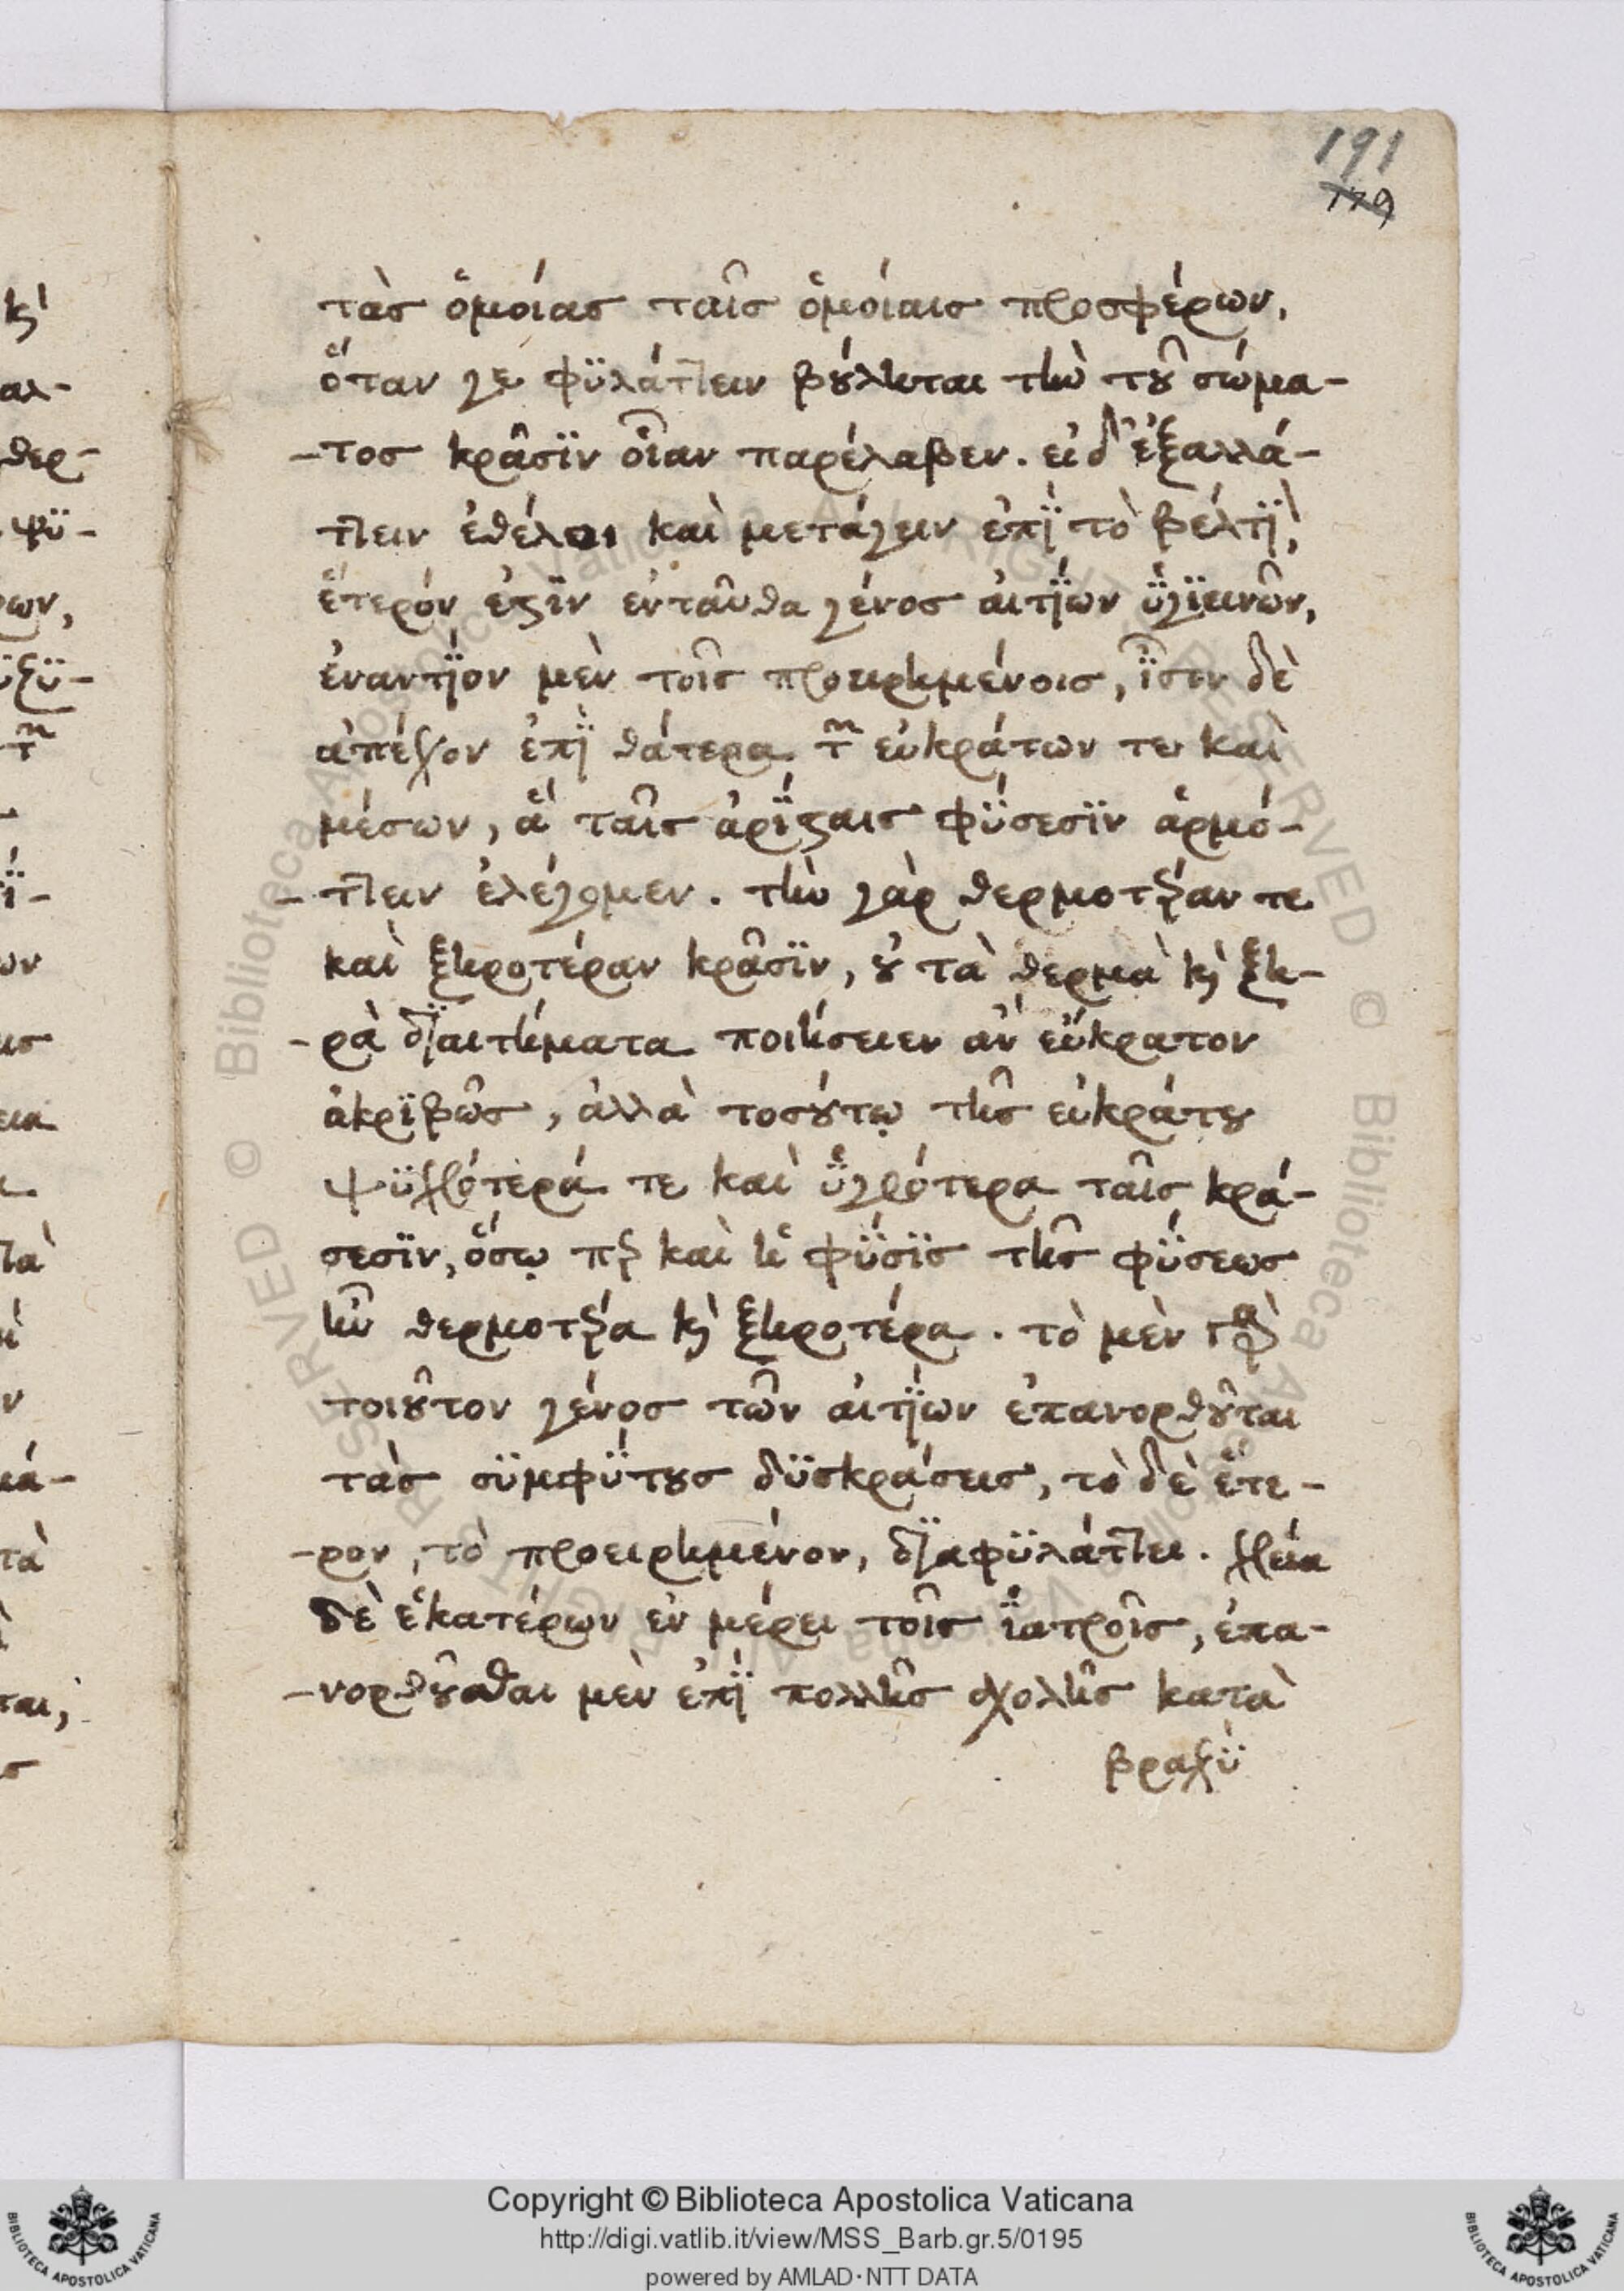 191
179
κ̀
αλ-
θερ-
φϋ-
ρων,
τὰσ ὁμοίασ ταῖσ ὁμοίαισ προσφέρων,
ὅταν γε φϋλάττειν βούληται τὴν τοῦ σώμα-
-τοσ κρᾶσϊν οἵαν παρέλαβεν. εἰ δ' ἐξαλλά-
ττειν ἐθέλοι καὶ μετάγειν ἐπῒ τὸ βέλτϊ,
ἕτερόν ἐστϊν ἐνταῦθα γένοσ αἰτΐων ὑγϊεινῶν,
ἐναντΐον μὲν τοῖσ προειρημένοισ, ἴσον δὲ
ἀπέχον ἐπῒ θάτερα τῶν εὐκράτων τε καὶ
μέσων, ἃ ταῖσ ἀρΐσταισ φΰσεσϊν ἁρμό-
-ττειν ἐλέγομεν. τὴν γὰρ θερμοτέραν τε
καὶ ξηροτέραν κρᾶσϊν, οὐ τὰ θερμὰ κὶ ξη-
-ρὰ δϊαιτήματα ποιήσειεν ἂν εὔκρατον
ἀκρϊβῶσ, ἀλλὰ τοσούτῳ τῆσ εὐκράτου
ψϋχρότερά τε καὶ ὑγρότερα ταῖσ κρά-
σεσϊν, ὅσῳ πὲρ καὶ ἡ φΰσϊσ τῆσ φΰσεωσ
ἦν θερμοτέρα κὶ ξηροτέρα. τὸ μὲν γὰρ
τοιοῦτον γένοσ τῶν αἰτΐων ἐπανορθοῦται
τὰσ σϋμφΰτουσ δϋσκράσεισ, τὸ δὲ ἕτε-
-ρον, τὸ προειρημένον, δϊαφϋλάττει. χρεία
δὲ ἑκατέρων ἐν μέρει τοῖσ ἰατροῖσ, ἐπα-
-νορθοῦσθαι μὲν ἐπῒ πολλῆσ σχολῆσ κατὰ
βραχῢ
Copyright © Biblioteca Apostolica Vaticana
http://digi.vatlib.it/view/MSS_Barb.gr.5/0195
powered by AMLAD·NTT DATA
BIBLIOTECA APOSTOLICA VATICANA
BIBLIOTECA APOSTOLICA VATICANA